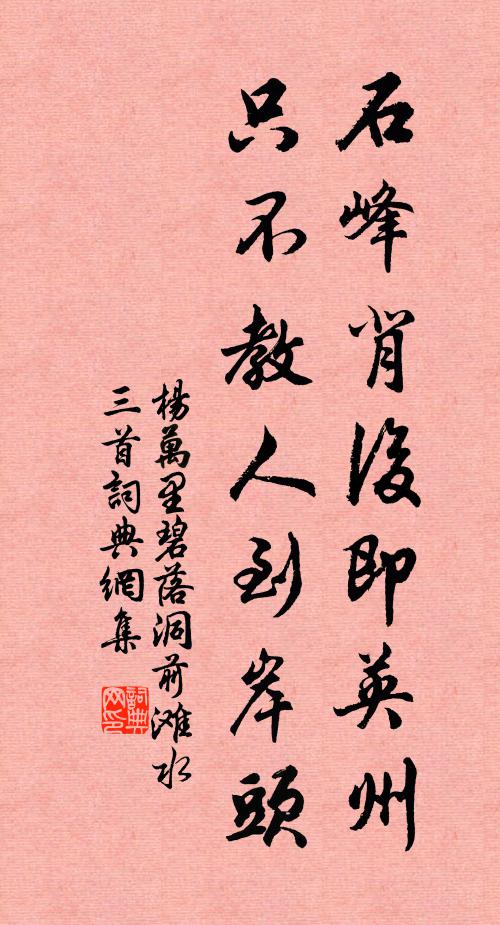 石峰背後即英州
只不教人到岸頭
楊萬里碧落洞前滩水
三首詞典網集
詞典
网印